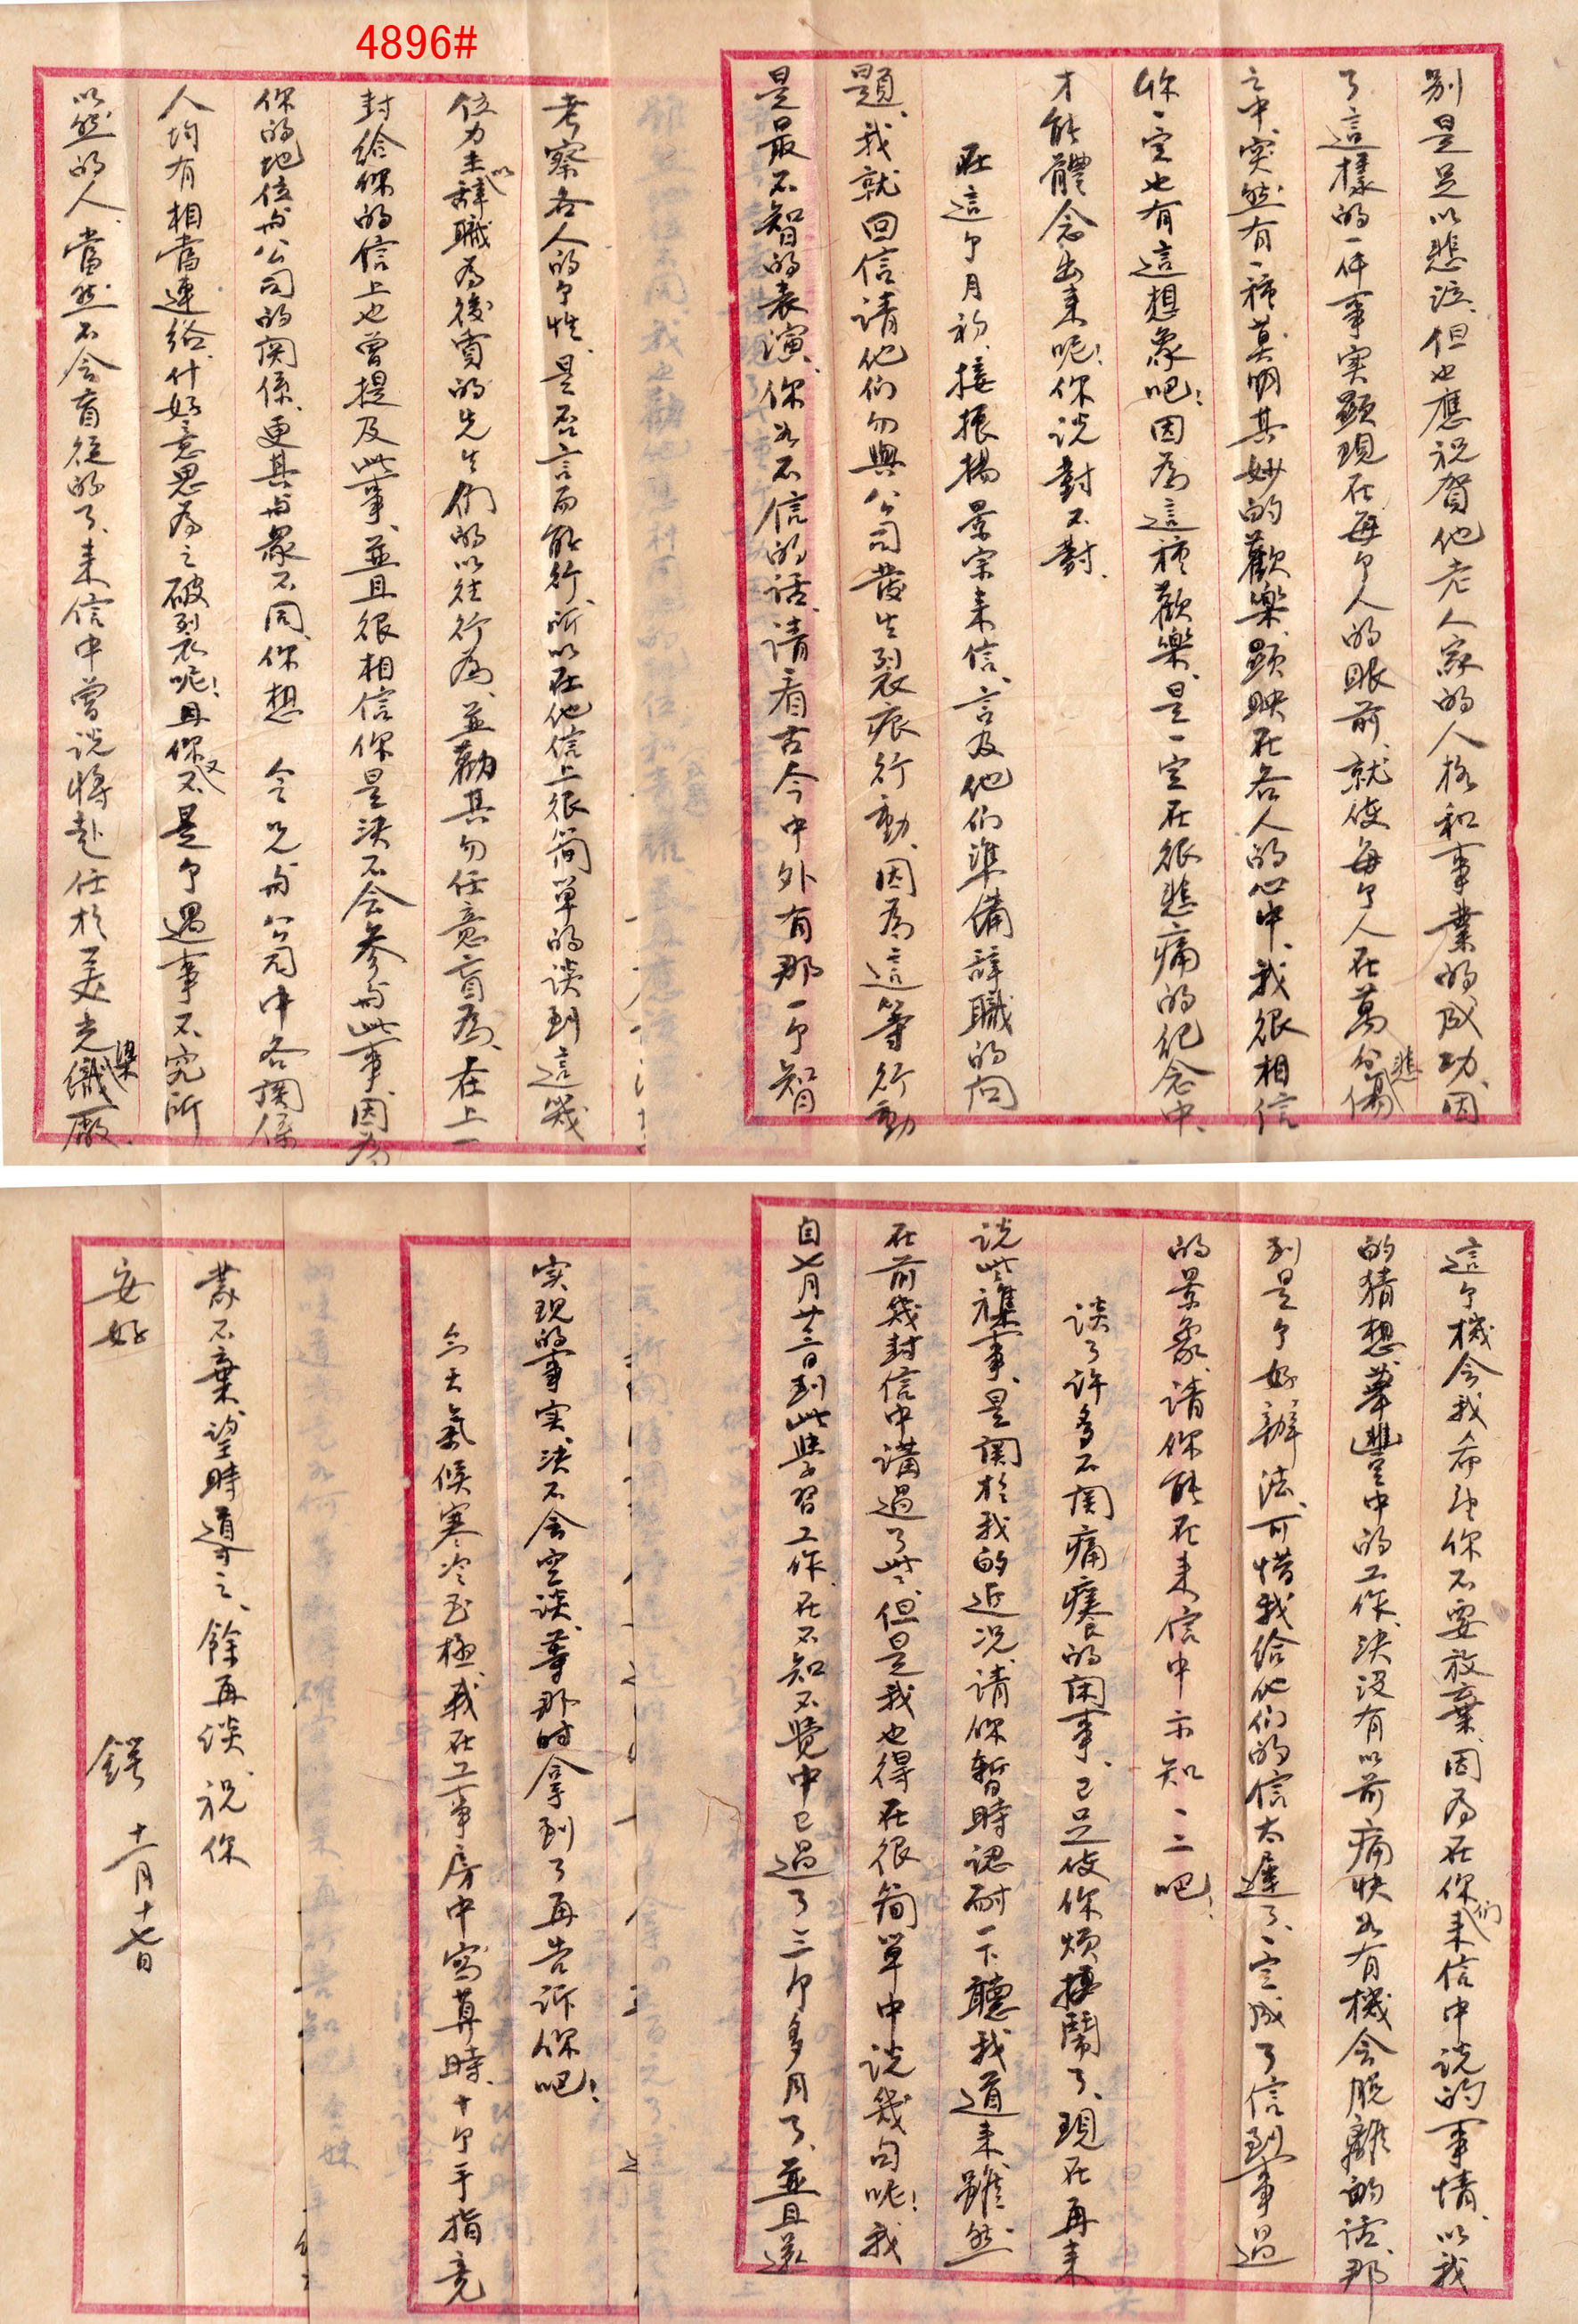 4896#
別是足以悲泣、但也應祝賀他老人家的人格和事業的成功、因
了這樣的一件事実顯現在每个人的眼前、就使每个人在萬分悲傷
之中、突然有一種莫明其妙的歡樂、顕映在各人的心中、我很相信
你一定也有這想象吧！因為這種歡樂、是一定在很悲痛的紀念中、
才能體念出来呢！你說對不對、
在這个月初、接振揚景宗来信、言及他们準備辞職的问
題、我就回信請他们勿與公司發生裂痕行動、因為這等行動
是最不智的表演、你为不信的話、請看古今中外有那一个智
考察各人的个性、是否言而能行、所以在他信上很简單的談到這幾
位力主以辞職為後賣的先生们的以往行為、並勸其勿任意盲為、在上一
封给你的信上也曾提及此事、並且很相信你是決不会參与此事、因為
你的地位与公司的関係、更其与衆不同、你想 令兄与公司中各関係
人均有相當連絡、什好意思為之破裂呢！且你又不是个遇事不究所
以然的人、當然不会盲從的了、来信中曾說將赴任於美光染織厰、
這个機会我希望你不要放棄、因為在你们来信中說的事情、以我
的猜想、華豐中的工作、決没有以前痛快、为有機会脱離的話、那
到是个好辦法、可惜我给他们的信太遲了、一定成了信到事過
的景象、請你能在来信中示知一二吧！
談了许多不関痛癢的閑事、已足使你煩擾鬧了、現在再来
説些襍事、是関於我的近况、請你暫時認耐一下聽我道来、雖然
在前幾封信中講過了些、但是我也得在很简單中說幾句呢！我
自七月廿三日到此學習工作、在不知不覺中已過了三个多月了、並且還
実現的事実、決不会空談、等那时拿到了再告訴你吧！
今天氣候寒冷至極、我在工事房中寫算時、十个手指竟
蒙不棄、望時道之、餘再談、祝你
安好
鍔 十一月十七日